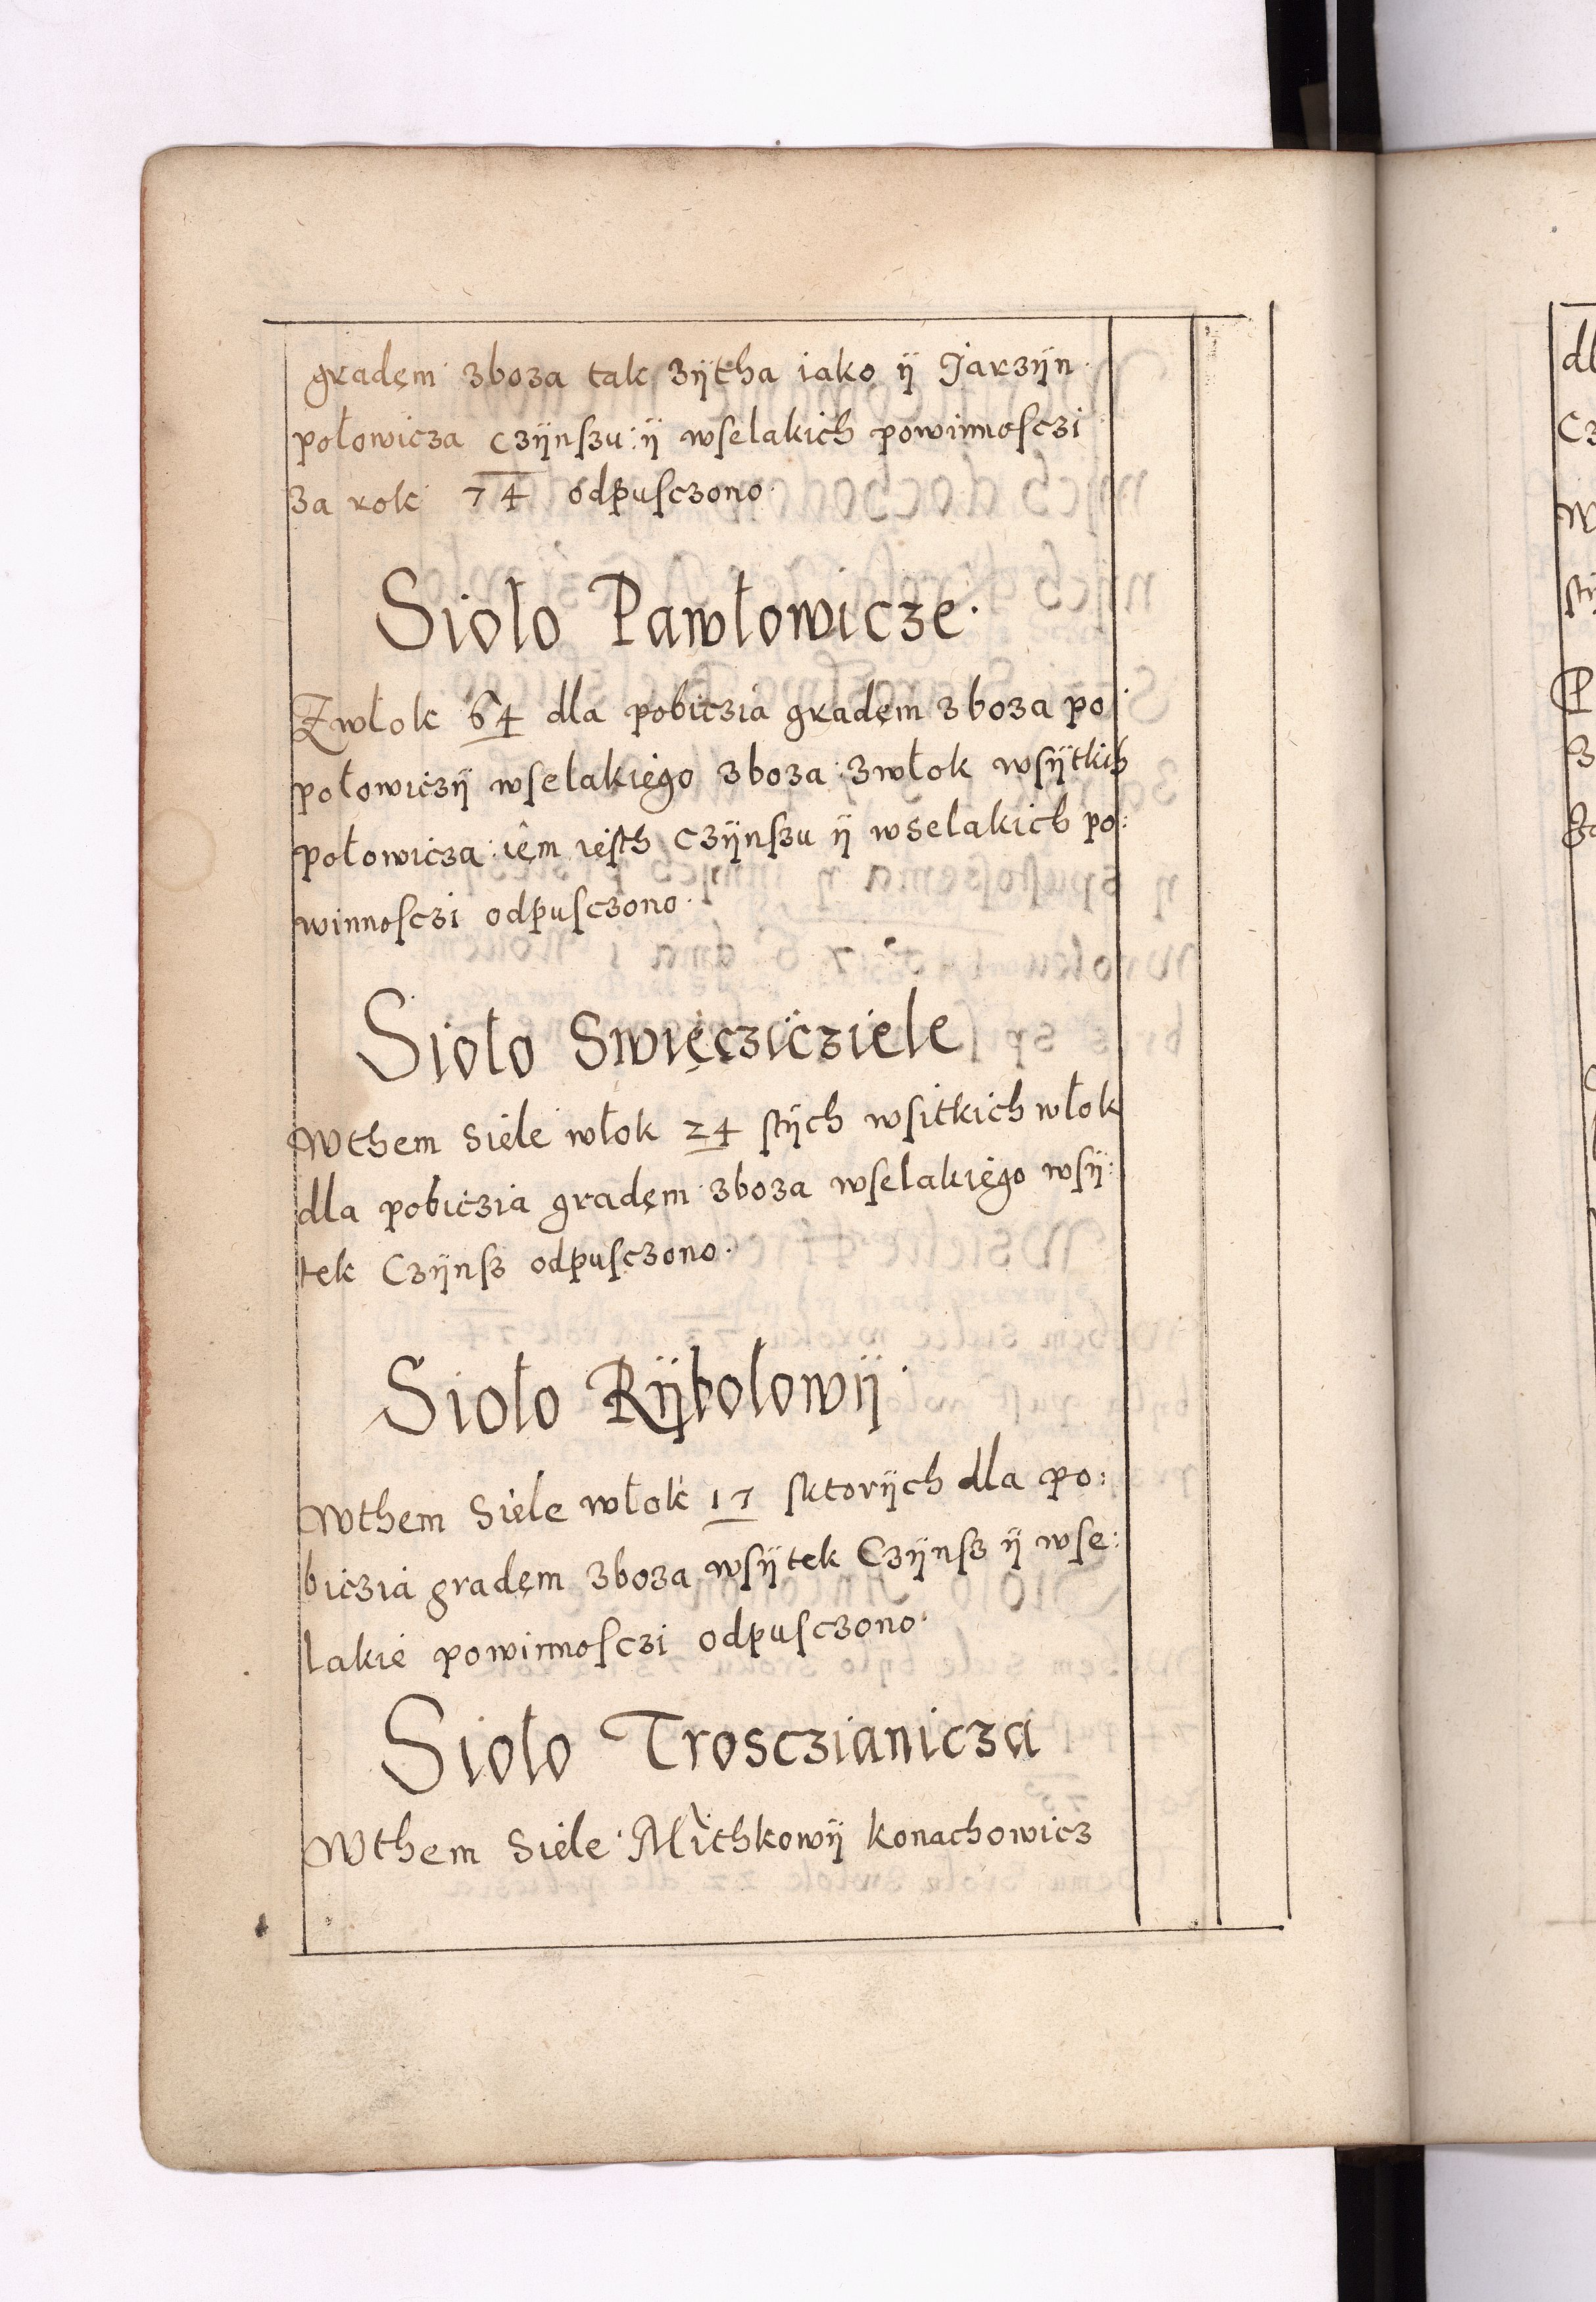 gradęm zboza tak zÿtha iako ÿ Jarzÿn
połowicza czÿnszu ÿ wselakich powinnosczi
za rok 74 odpusczono
Sioło Pawłowicze
Zwłok 64 dla pobiczia gradęm zboza po
połowiczÿ wselakiego zboza zwłok wsÿtkich
połowicza iêm iesth czÿnszu ÿ wselakich po:
winnosczi odpusczono
Sioło Swięcziczięle
Wthem siele włok 24 stÿch wsitkich włok
dla pobiczia gradęm zboza wselakiego wsÿ:
tek Czÿnsz odpusczono.
Sioło Rÿbolowÿ
Wthem Siele włok 17 sktorÿch dla po:
biczia gradęm zboza wsÿtek Czÿnsz ÿ wse:
lakie powinnosczi odpusczono
Sioło Trosczianicza
Wthem Siele Mithkowÿ konachowicz
dl